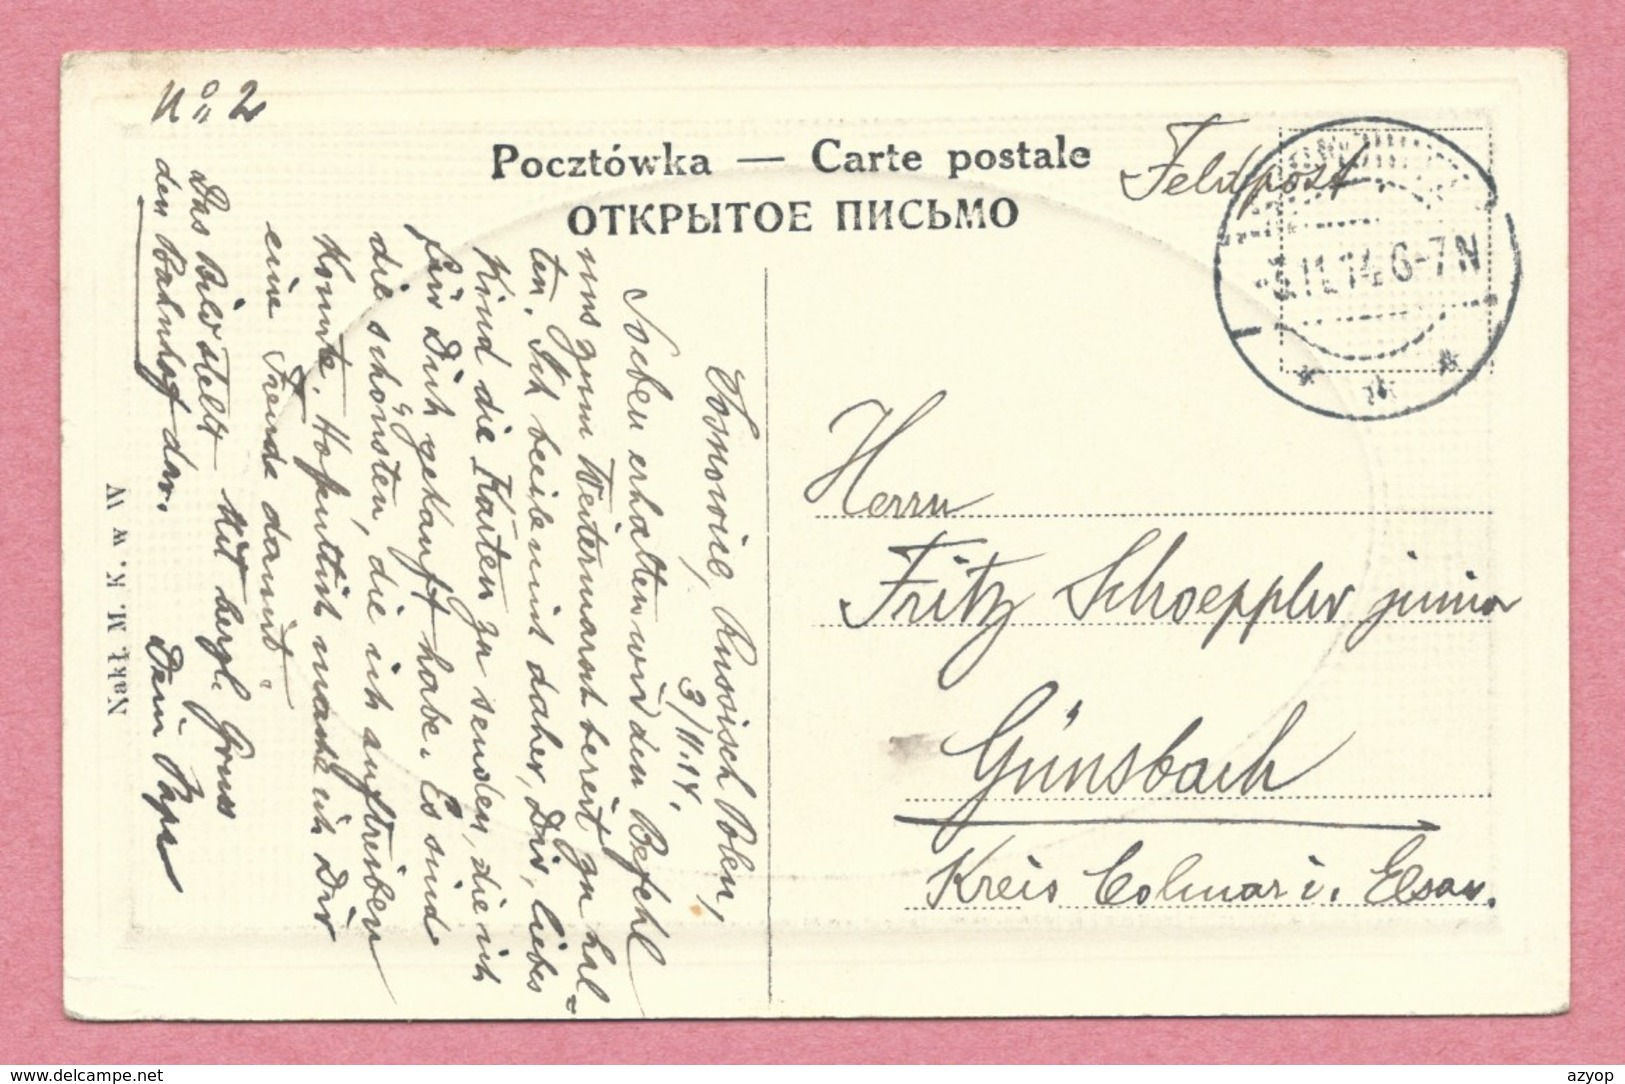 No 2
Pocztówka — Carte postale
ОТКРЫТОЕ ПИСЬМО
Feldpost
.11.14.6-7N
Sosnowice, Russisch Polen,
3/11.14.
Soeben erhalten wir den Befehl
uns zum Weitermarsch bereit zu hal=
ten. Ich beile mich daher, Dir, liebes
Kind die Karten zu senden, die ich
für Dich gekauft habe. Es sind
die schönsten, die ich auftreiben
konnte. Hoffentlich mache ich Dir
eine Freude damit.
Das Bild stellt
den Bahnhof dar.
Mit herzl. Gruss
Dein Papa
Herrn
Fritz Schoeppler junior
Günsbach
Kreis Colmar i. Elsass.
Nakł. M. K. w W
delcampe.net
azyop